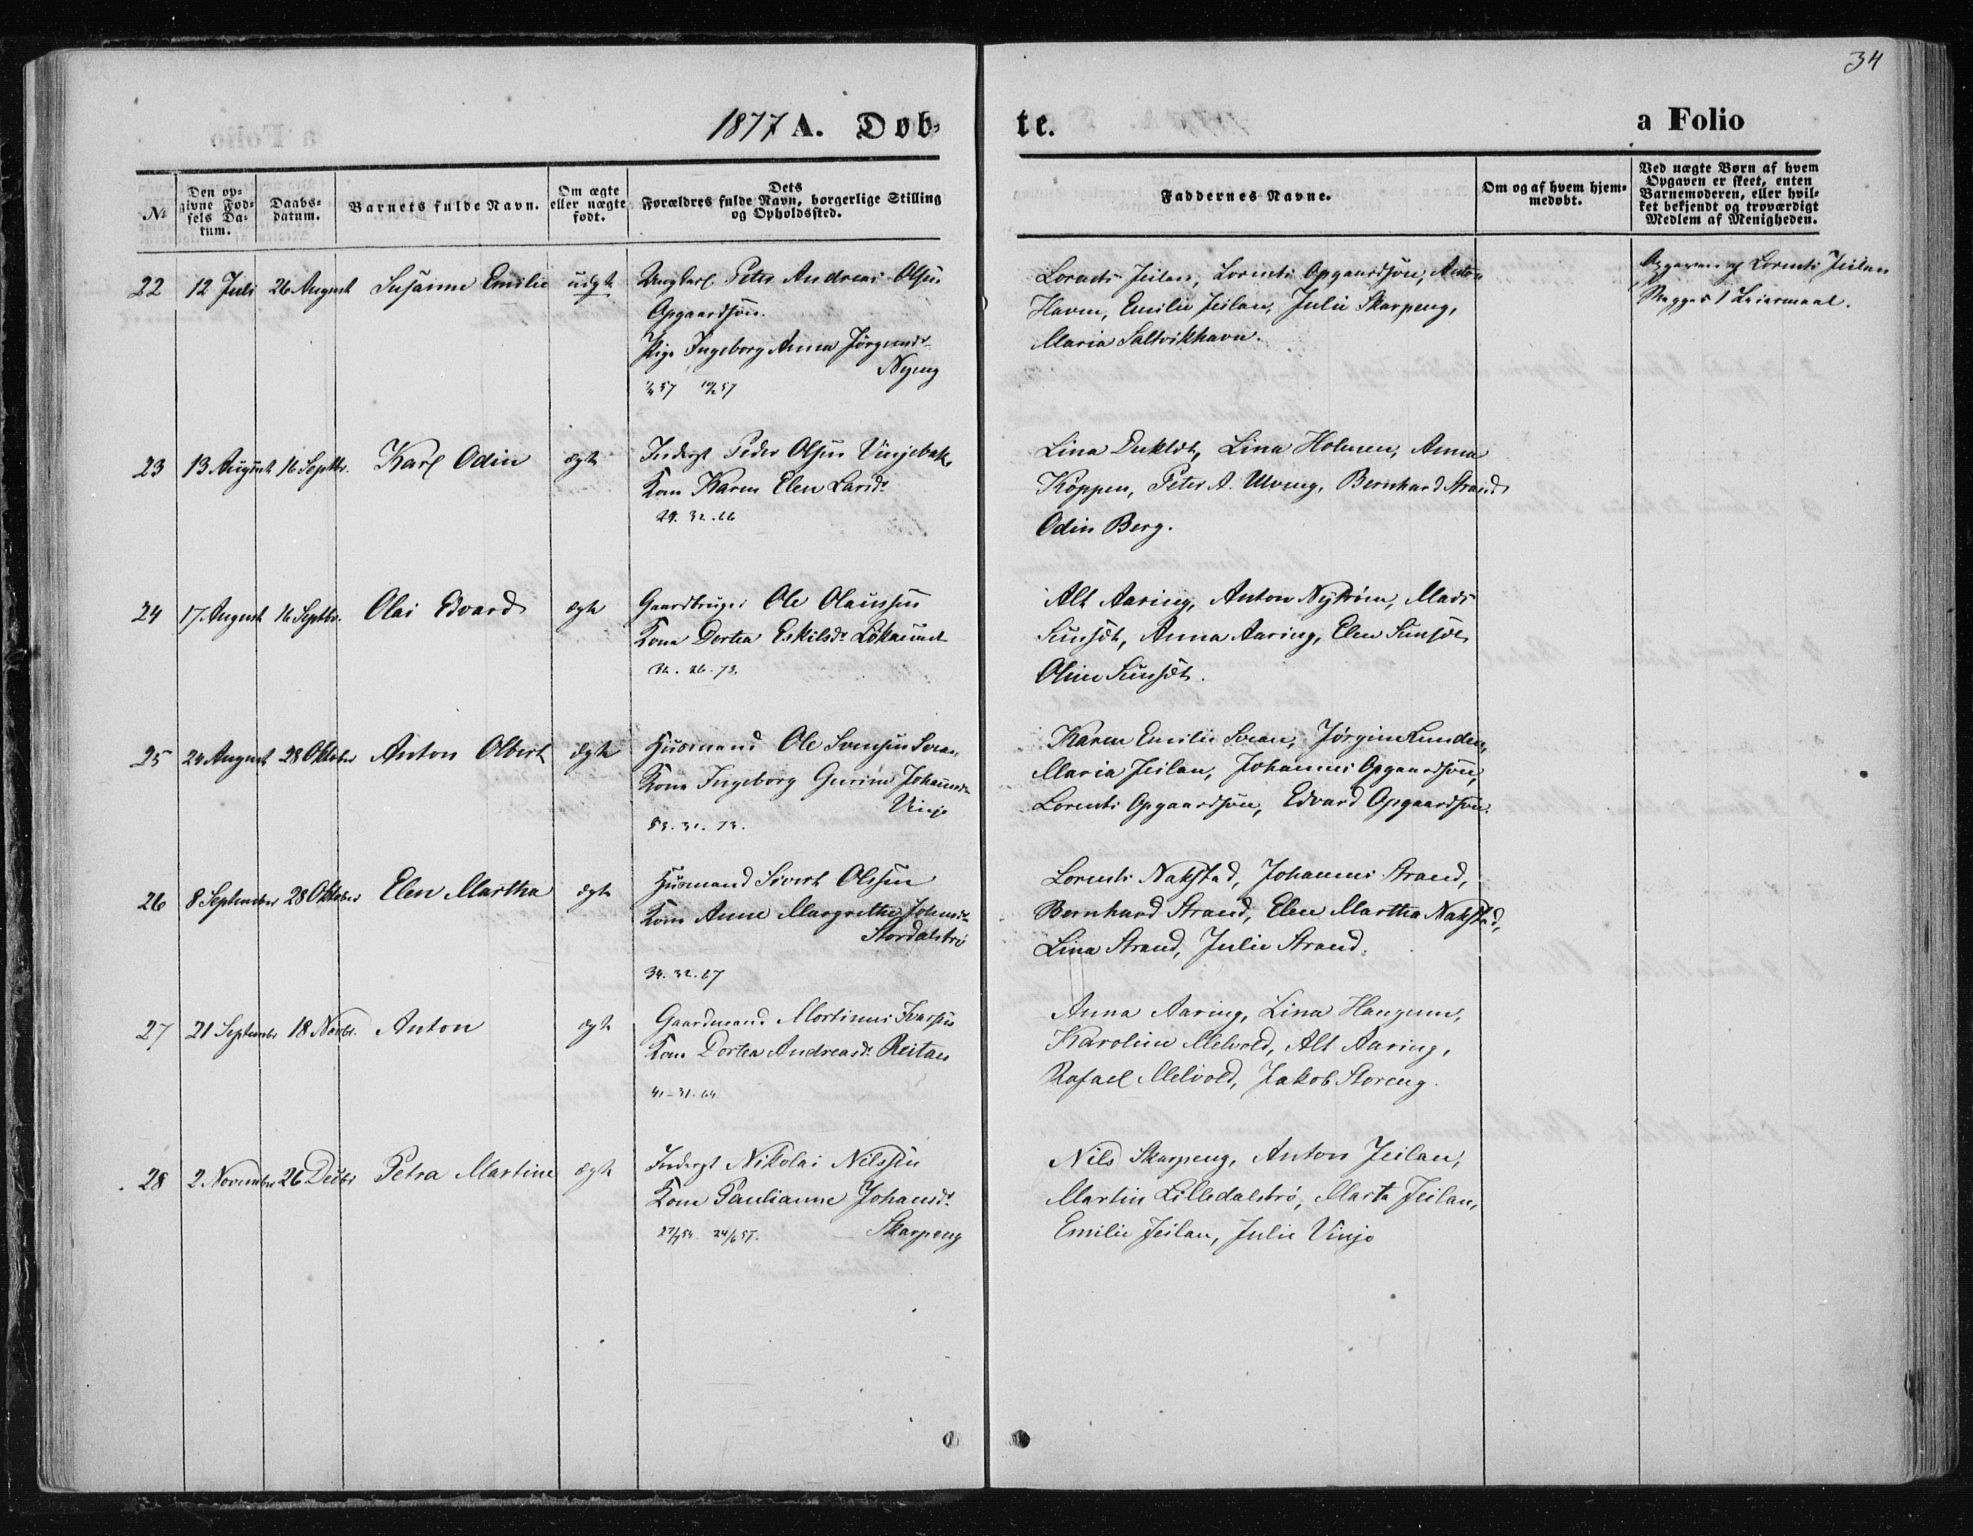 34
1877 A. Døb-
te.
a Folio
No.
Den op-
givne Fød-
sels Da-
tum.
Daabs-
datum.
Barnets fulde Navn.
Om ægte
eller uægte
født.
Dets
Forældres fulde Navn, borgerlige Stilling
og Opholdssted.
Faddernes Navne.
Om og af hvem hjem-
medøbt.
Ved uægte Børn af hvem
Opgaven er skeet, enten
Barnemoderen, eller hvil-
ket bekjendt og troværdigt
Medlem af Menigheden.
22 12 Juli 26 August Susanne Emilie uægte Ungkarl Peter Andreas Olsen
Opgaardsøen.
Pige Ingeborg Anna Jørgensdr
Nyeng
Lorents Jeilan, Lorents Opgaardsøen, Anton
Haven, Emilie Jeilan, Julie Skarpeng,
Maria Saltvikhavn.
Opgaven af Lorents Jeilan
Begges 1 Leiermaal.
23 13 August 16 Septbr. Karl Odin ægte Inderst Peder Olsen Vinjebak
Kone Karen Elen Larsdr
29. 32. 66
Lina Lina Holmen, Anna
Koppen, Peter A. Ulveng, Bernhard Strand
Odin Berg.
24 17 August 16 Septbr. Olai Edvard ægte Gaardbruger Ole Olaussen
Kone Dortea Eskilsdr
32. 26. 73.
Alt Aaring, Anton Nystrøm, Mads
Sunset, Anna Aaring, Elen Sunset
Oline Sunset.
25 24 August 28 Oktober Anton Olbert ægte Husmand Ole Svensen Svean
Kone Ingeborg Gurine Johannsdr
Vinje
53. 31. 73.
Karen Emilie Svean, Jørgine Lunden,
Maria Jeilan, Johannes Opgaardsøen,
Lorents Opgaardsøen, Edvard Opgaardsøen.
26 8 September 28 Oktober Elen Martha ægte Husmand Sivert Olssen
Kone Anne Margrethe Johansdr
Stordalstrø
34. 32. 67
Lorents Nakstad, Johannes Strand,
Bernhard Strand, Elen Martha Nakstad,
Lina Strand, Julie Strand.
27 21 Septembr 18 Novbr. Anton ægte Gaardmand Mortinus Ivarsen
Kone Dortea Andreasdr Reitan
41-31. 64
Anna Aaring, Lina Haugum,
Karoline Melvold, Alt Aaring,
Rafael Melvold, Jakob Storeng.
28 2 November 26 Decbr Petra Martine ægte Inderst Nikolai Nilssen
Kone Paulianne Johansdr
27/7 54. 24/6 57. Skarpeng
Nils Skarpeng, Anton Jeilan,
Martin Lilledalstrø, Marta Jeilan,
Emilie Jeilan, Julie Vinje